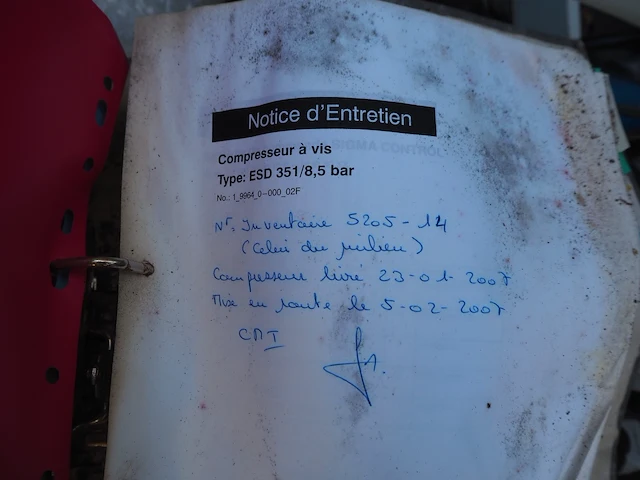 Notice d'Entretien
SIGMA CONTROL
Compresseur à vis
Type: ESD 351/8,5 bar
No.: 1_9964_0-000_02F
Nr. Inventaire 5205-14
(Celui du milieu)
Compresseur livré 23-01-2007
Mise en route le 5-02-2007